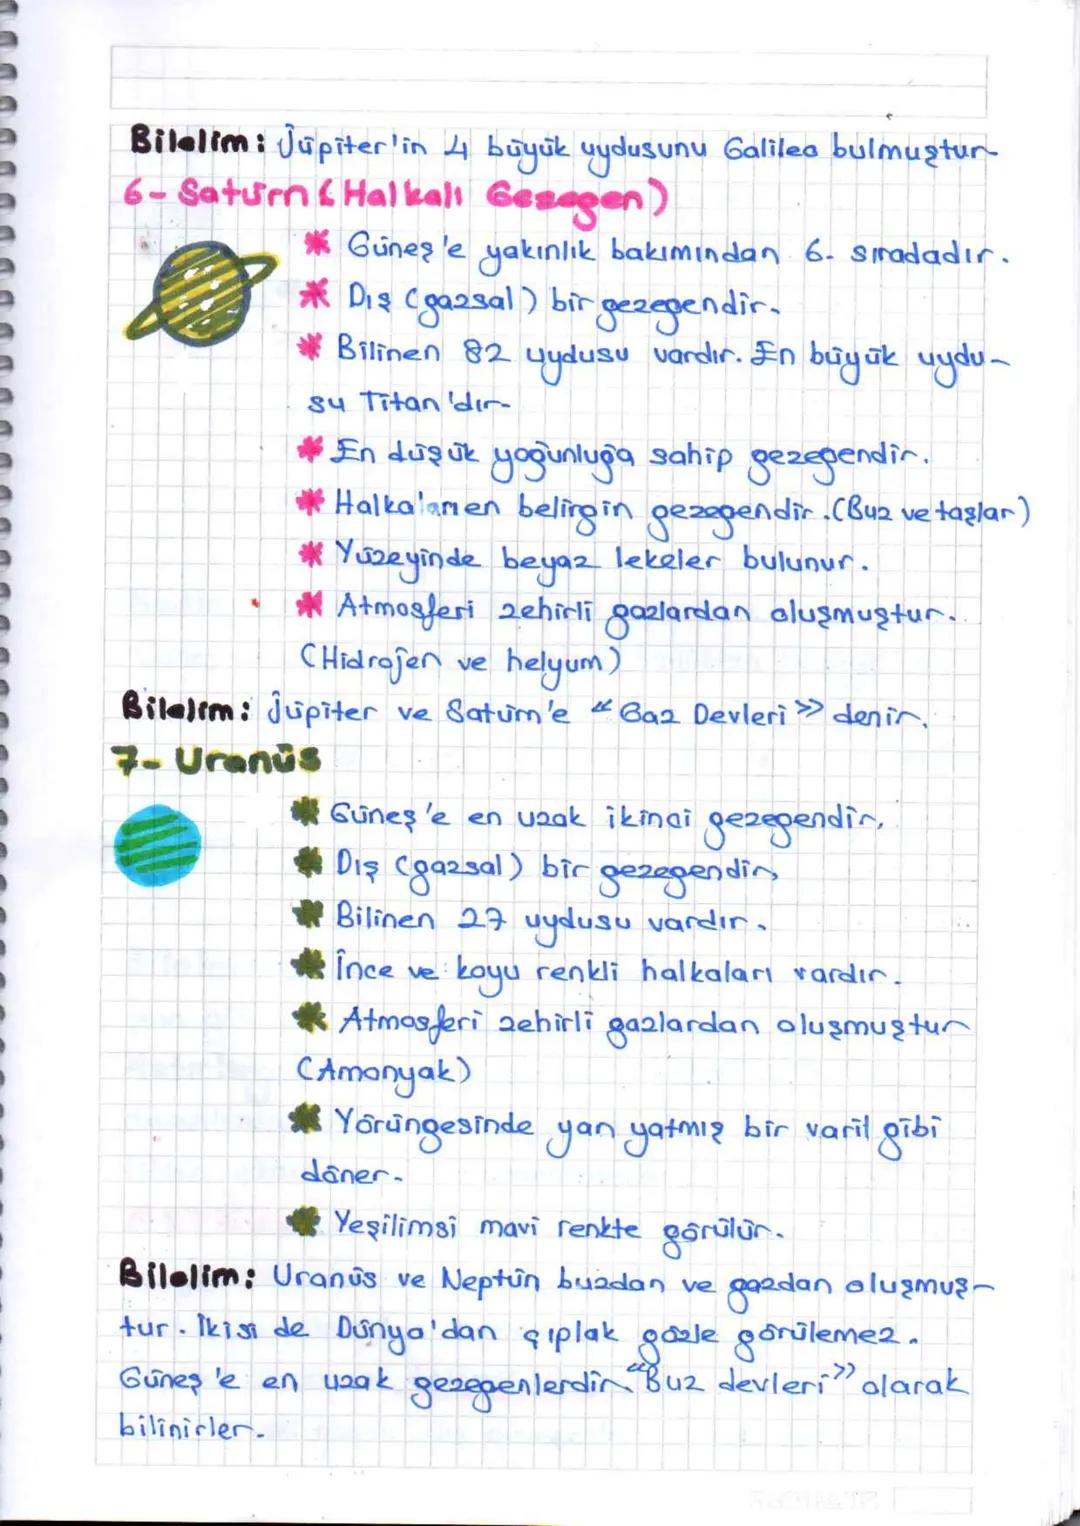 Bilelim: Jüpiter'in 4 büyük uydusunu Galileo bulmuştur.
6- Satürn (Halkalı Gezegen)
* Güneş'e yakınlık bakımından 6. sıradadır.
* Dış (gazsal) bir gezegendir.
* Bilinen 82 uydusu vardır. En büyük uydu-
su Titan'dır.
* En düşük yoğunluğa sahip gezegendir.
* Halkaları en belirgin gezegendir. (Buz ve taşlar)
* Yüzeyinde beyaz lekeler bulunur.
* Atmosferi zehirli gazlardan oluşmuştur.
(Hidrojen ve helyum)
Bilelim: Jüpiter ve Satürn'e “Gaz Devleri” denir.
7- Uranüs
* Güneş'e en uzak ikinci gezegendir.
* Dış (gazsal) bir gezegendir.
* Bilinen 27 uydusu vardır.
* İnce ve koyu renkli halkaları vardır.
* Atmosferi zehirli gazlardan oluşmuştur
(Amonyak)
* Yörüngesinde yan yatmış bir varil gibi
döner.
* Yeşilimsi mavi renkte görülür.
Bilelim: Uranüs ve Neptün buzdan ve gazdan oluşmuş-
tur. İkisi de Dünya'dan çıplak gözle görülemez.
Güneş'e en uzak gezegenlerdir. “Buz devleri” olarak
bilinirler.